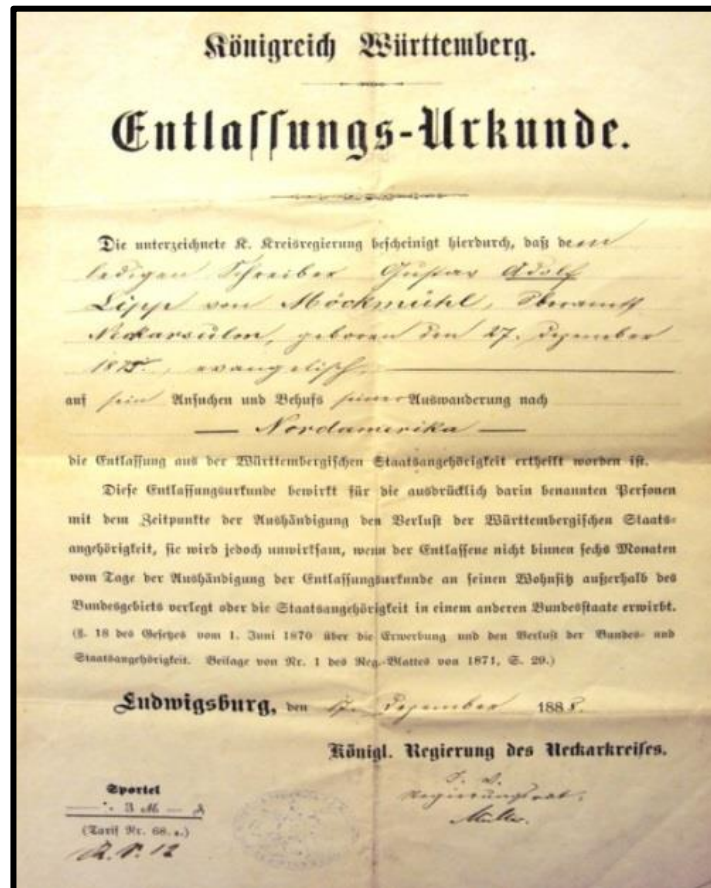 Königreich Württemberg.
Entlassungs-Urkunde.
Die unterzeichnete K. Kreisregierung bescheinigt hierdurch, daß dem
ledigen Schreiber Gustav Adolf
Lipp von Möckmühl, Oberamts
Neckarsulm, geboren den 27. Dezember
evangelisch,
auf sein Ansuchen und Behufs seiner Auswanderung nach
— Nordamerika —
die Entlassung aus der Württembergischen Staatsangehörigkeit ertheilt worden ist.
Diese Entlassungsurkunde bewirkt für die ausdrücklich darin benannten Personen
mit dem Zeitpunkte der Aushändigung den Verlust der Württembergischen Staats-
angehörigkeit, sie wird jedoch unwirksam, wenn der Entlassene nicht binnen sechs Monaten
vom Tage der Aushändigung der Entlassungsurkunde an seinen Wohnsitz außerhalb des
Bundesgebiets verlegt oder die Staatsangehörigkeit in einem anderen Bundesstaate erwirbt.
(§. 18 des Gesetzes vom 1. Juni 1870 über die Erwerbung und den Verlust der Bundes- und
Staatsangehörigkeit. Beilage von Nr. 1 des Reg.-Blattes von 1871, S. 29.)
Ludwigsburg, den 17. Dezember 188
Königl. Regierung des Neckarkreises.
Regierungsrat.
Müller.
Sportel
3 M
(Tarif Nr. 68.a.)